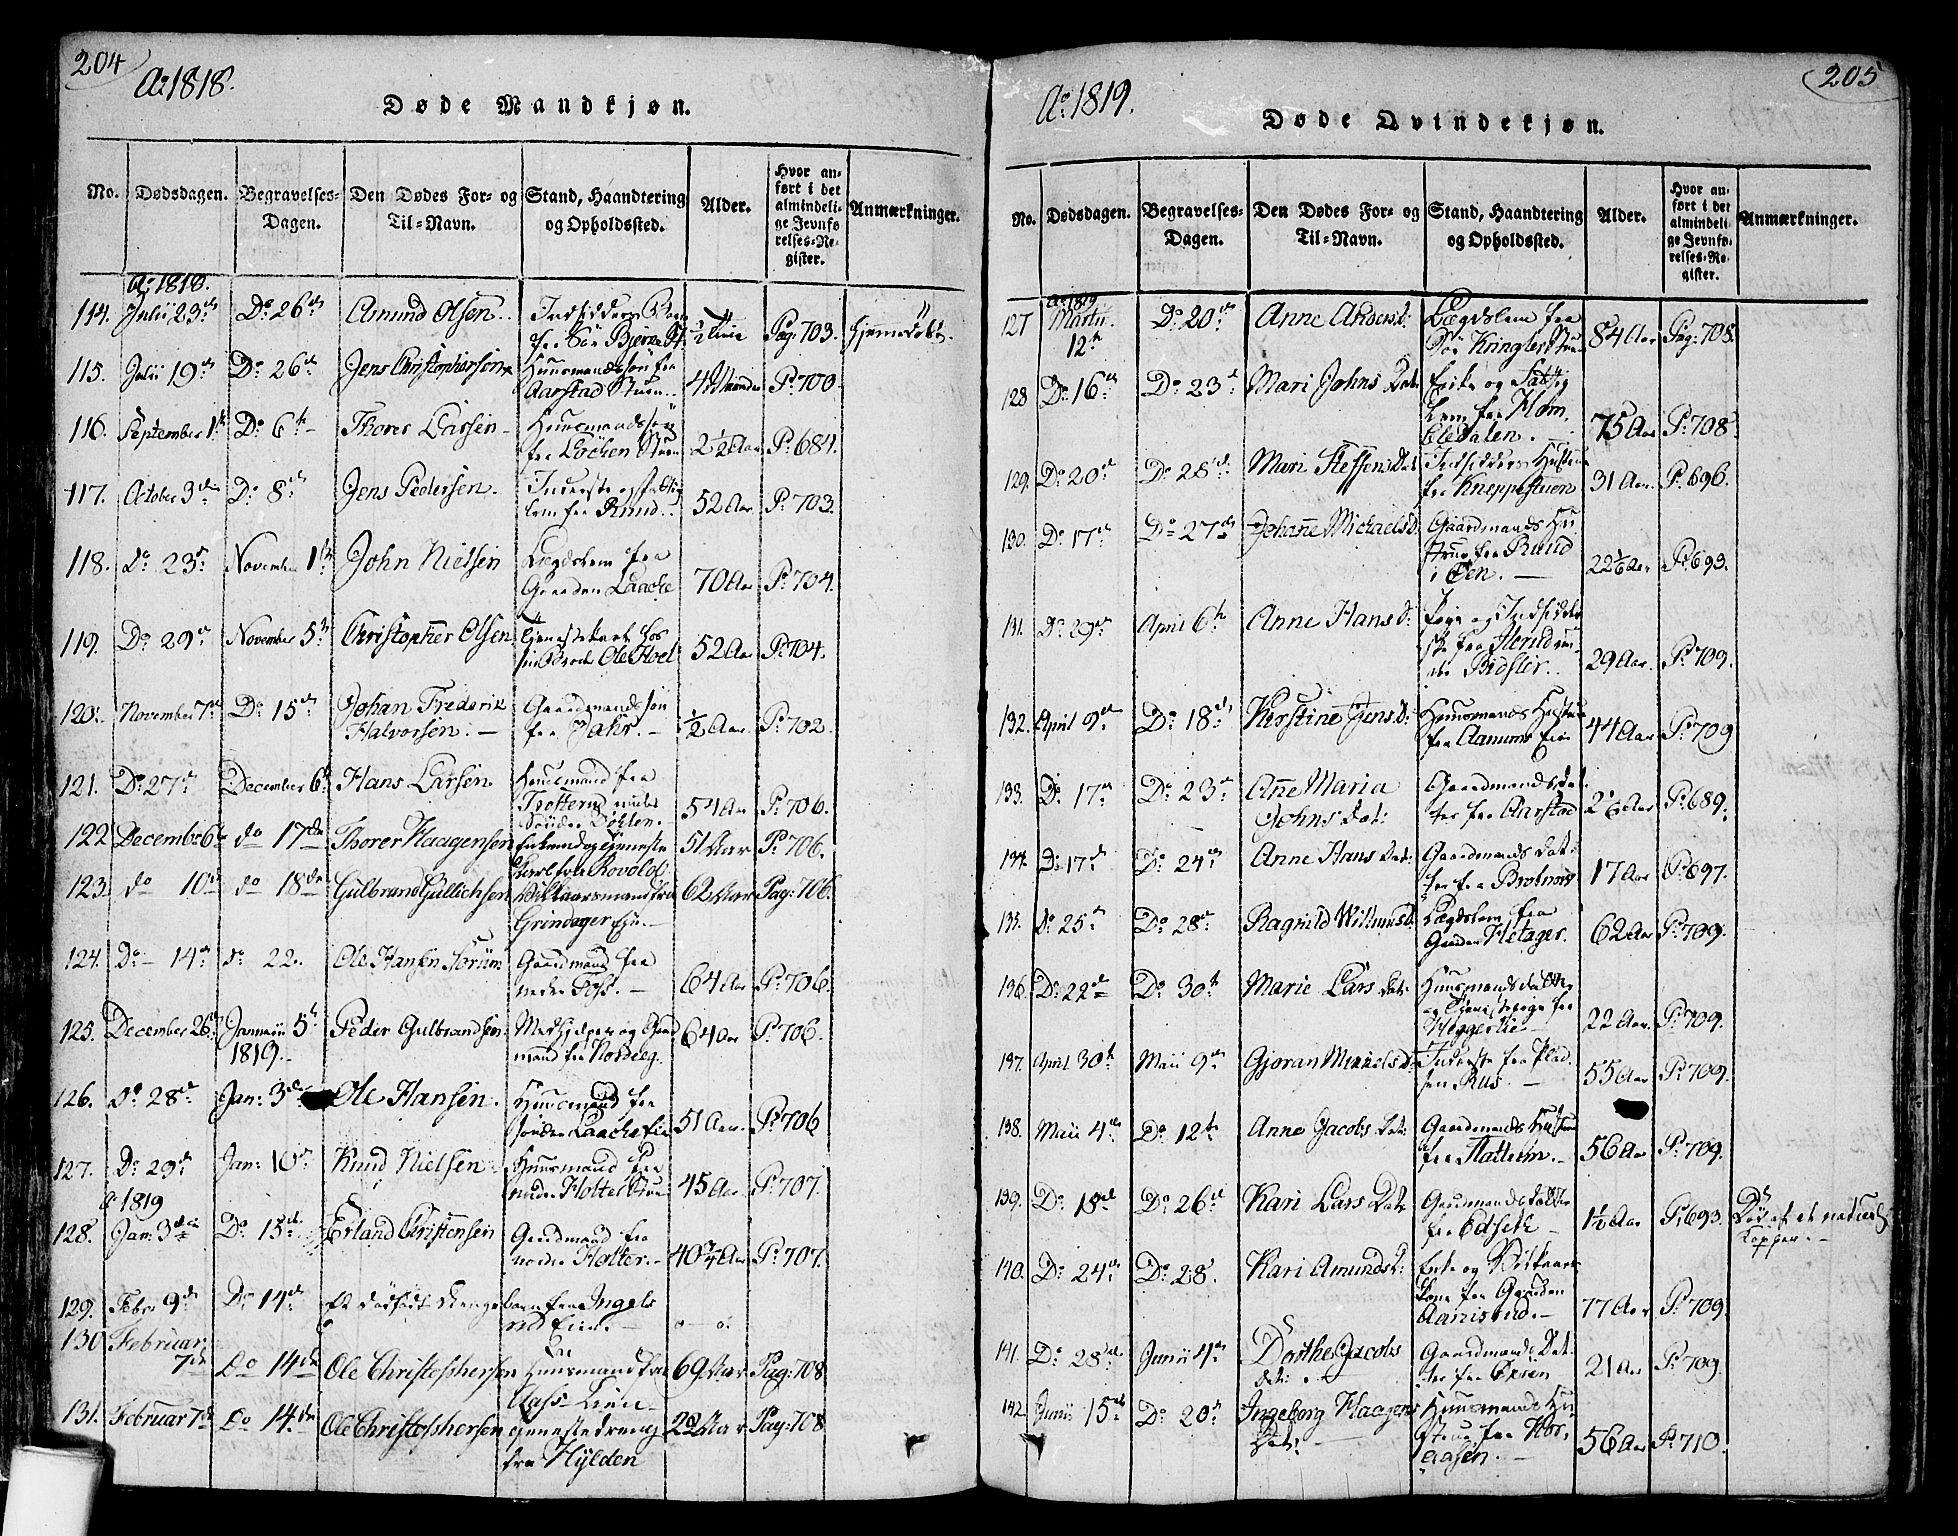 204
Aº 1818.
Døde Mandkjøn.
No.
Dødsdagen.
Begravelses-Dagen.
Den Dødes For- og Til-Navn.
Stand, Haandtering og Opholdssted.
Alder.
Hvor anført i det almindelige Jevnførelses-Register.
Anmærkninger.
Aº 1818.
114. Julii 23de Dº 26de Amund Olsen. Pag: 703. hjemedøbt.
115. Julii 19de Dº 26de Jens Christophersen Huusmandssøn fra Aarstad Stuen. Pº 700.
116. September 1ste Dº 6te Thorer Larsen Huusmandssøn fra Løchen Stuen 2½ Aar Pº 684.
117. October 3de Dº 8de Jens Pedersen. Inderste og fra Ruud. 52 Aar Pº 703.
118. Dº 23de November 1ste John Nielsen Lægdslem fra Gaarden Laache 70 Aar Pº 704.
119. Dº 29de November 5te Christopher Olsen Tjenestekarl hos Ole Hoel 52 Aar Pº 704.
120. November 7de Dº 15de Johan Frederik Halvorsen. Gaardmandssøn fra Jahr. ½ Aar Pº 702.
121. Dº 27de December 6te Hans Larsen Huusmand fra 54 Aar Pº 706.
122 December 6te do 17de Thorer Haagensen fra Rovold 51 Aar Pº 706.
123. do 10de do 18de Gulbrand Gullichsen Vilkaarsmand fra Grindager Eje. 62 Aar Pag: 706.
124. Dº 14de dº 22. Ole Hansen Gaardmand fra nedre Foss. 64 Aar Pº 706.
125. December 26de Januarii 5te 1819. Peder Gulbrandsen Medhjelper og Gaardmand fra Nordeng. 64 Aar Pº 706.
126. Dº 28de Jan: 3de Ole Hansen. Huusmand fra søndre Laache Eie 51 Aar. Pº 706
127. Dº 29de Jan: 10de Knud Nielsen Huusmand fra nedre Holter Stuen 45 Aar Pº 707.
Aº 1819
128. Jan: 3de Dº 15de Erland Christensen Gaardmand fra nedre Holter. 40¾ Aar Pº 707.
129. Febr 9de Dº 14de Et dødfødt Drengebarn fra Ingelsrud Eie.
130 Februar 7de Do 14de Ole Christophersen Huusmand fra 69 Aar Pag: 708
131. Februar 7de Do 14de Ole Christophersen tjenestedreng fra Hylden 22 Aar Pag: 708
205
Aº 1819.
Døde Qvindekjøn.
No.
Dødsdagen.
Begravelses-Dagen.
Den Dødes For- og Til-Navn.
Stand, Haandtering og Opholdssted.
Alder.
Hvor anført i det almindelige Jevnførelses-Register.
Anmærkninger.
Aº 1819
127 Martii 12te Dº 20de Anne Andersd: Lægdslem fra Kringler Stuen 84 Aar Pag: 708.
128 Dº 16de Dº 23de Mari Johns Dat: Enke og Fattiglem fra 75 Aar Pº 708
129. Dº 20de Dº 28de Mari Steffens Dat Indsidders Hustrue fra Kneppestuen 31 Aar. Pº 696.
130. Dº 17de Dº 27de Johanne Michaelsd: Gaardmands Hustrue fra Ruud i Eien. 22 Aar Pº 693.
131. Dº 29de April 6te Anne Hans d: Pige og 29 Aar Pº 709.
132. April 9de Dº 18de Kerstine Jens d: Huusmands Hustrue fra 44 Aar Pº 709
133. Dº 17de Dº 23de Anne Maria Johns Dat: Gaardmands Datter fra Aarstad Pº 689.
134. Dº 17de Dº 24de Anne Hans Dat: Gaardmands Datter fra 17 Aar Pº 697.
135. Dº 25de Dº 28de Ragnild Lægdslem fra Gaarden Hetager. 62 Aar Pº 709.
136. Dº 22de Dº 30te Marie Lars Dat: Huusmands Datter og Tjenestepige fra Heggerlie 22 Aar. Pº 709.
137. April 30te Maii 9de Gjøran Inderste fra 55 Aar Pº 709.
138. Maii 4de Dº 12te Anne Jacobs Dat: Gaardmands Hustrue fra 56 Aar Pº 709.
139. Dº 18de Dº 26de Kari Lars Dat: Gaardmands Datter fra 1½ Aar Pº 693. Død af de naturlige Kopper.
140. Dº 24de Dº 28. Kari Amunds d: Enke og Vilkaarskone fra Gaarden Aanisrud. 77 Aar Pº 709.
141. Dº 28de Junii 4de Dorthe Jacobs dat: Gaardmands Datter fra 21 Aar Pº 709
142. Junii 15de Dº 20de Ingeborg Haagens Dat: Huusmands Hustrue fra 56 Aar Pº 710.